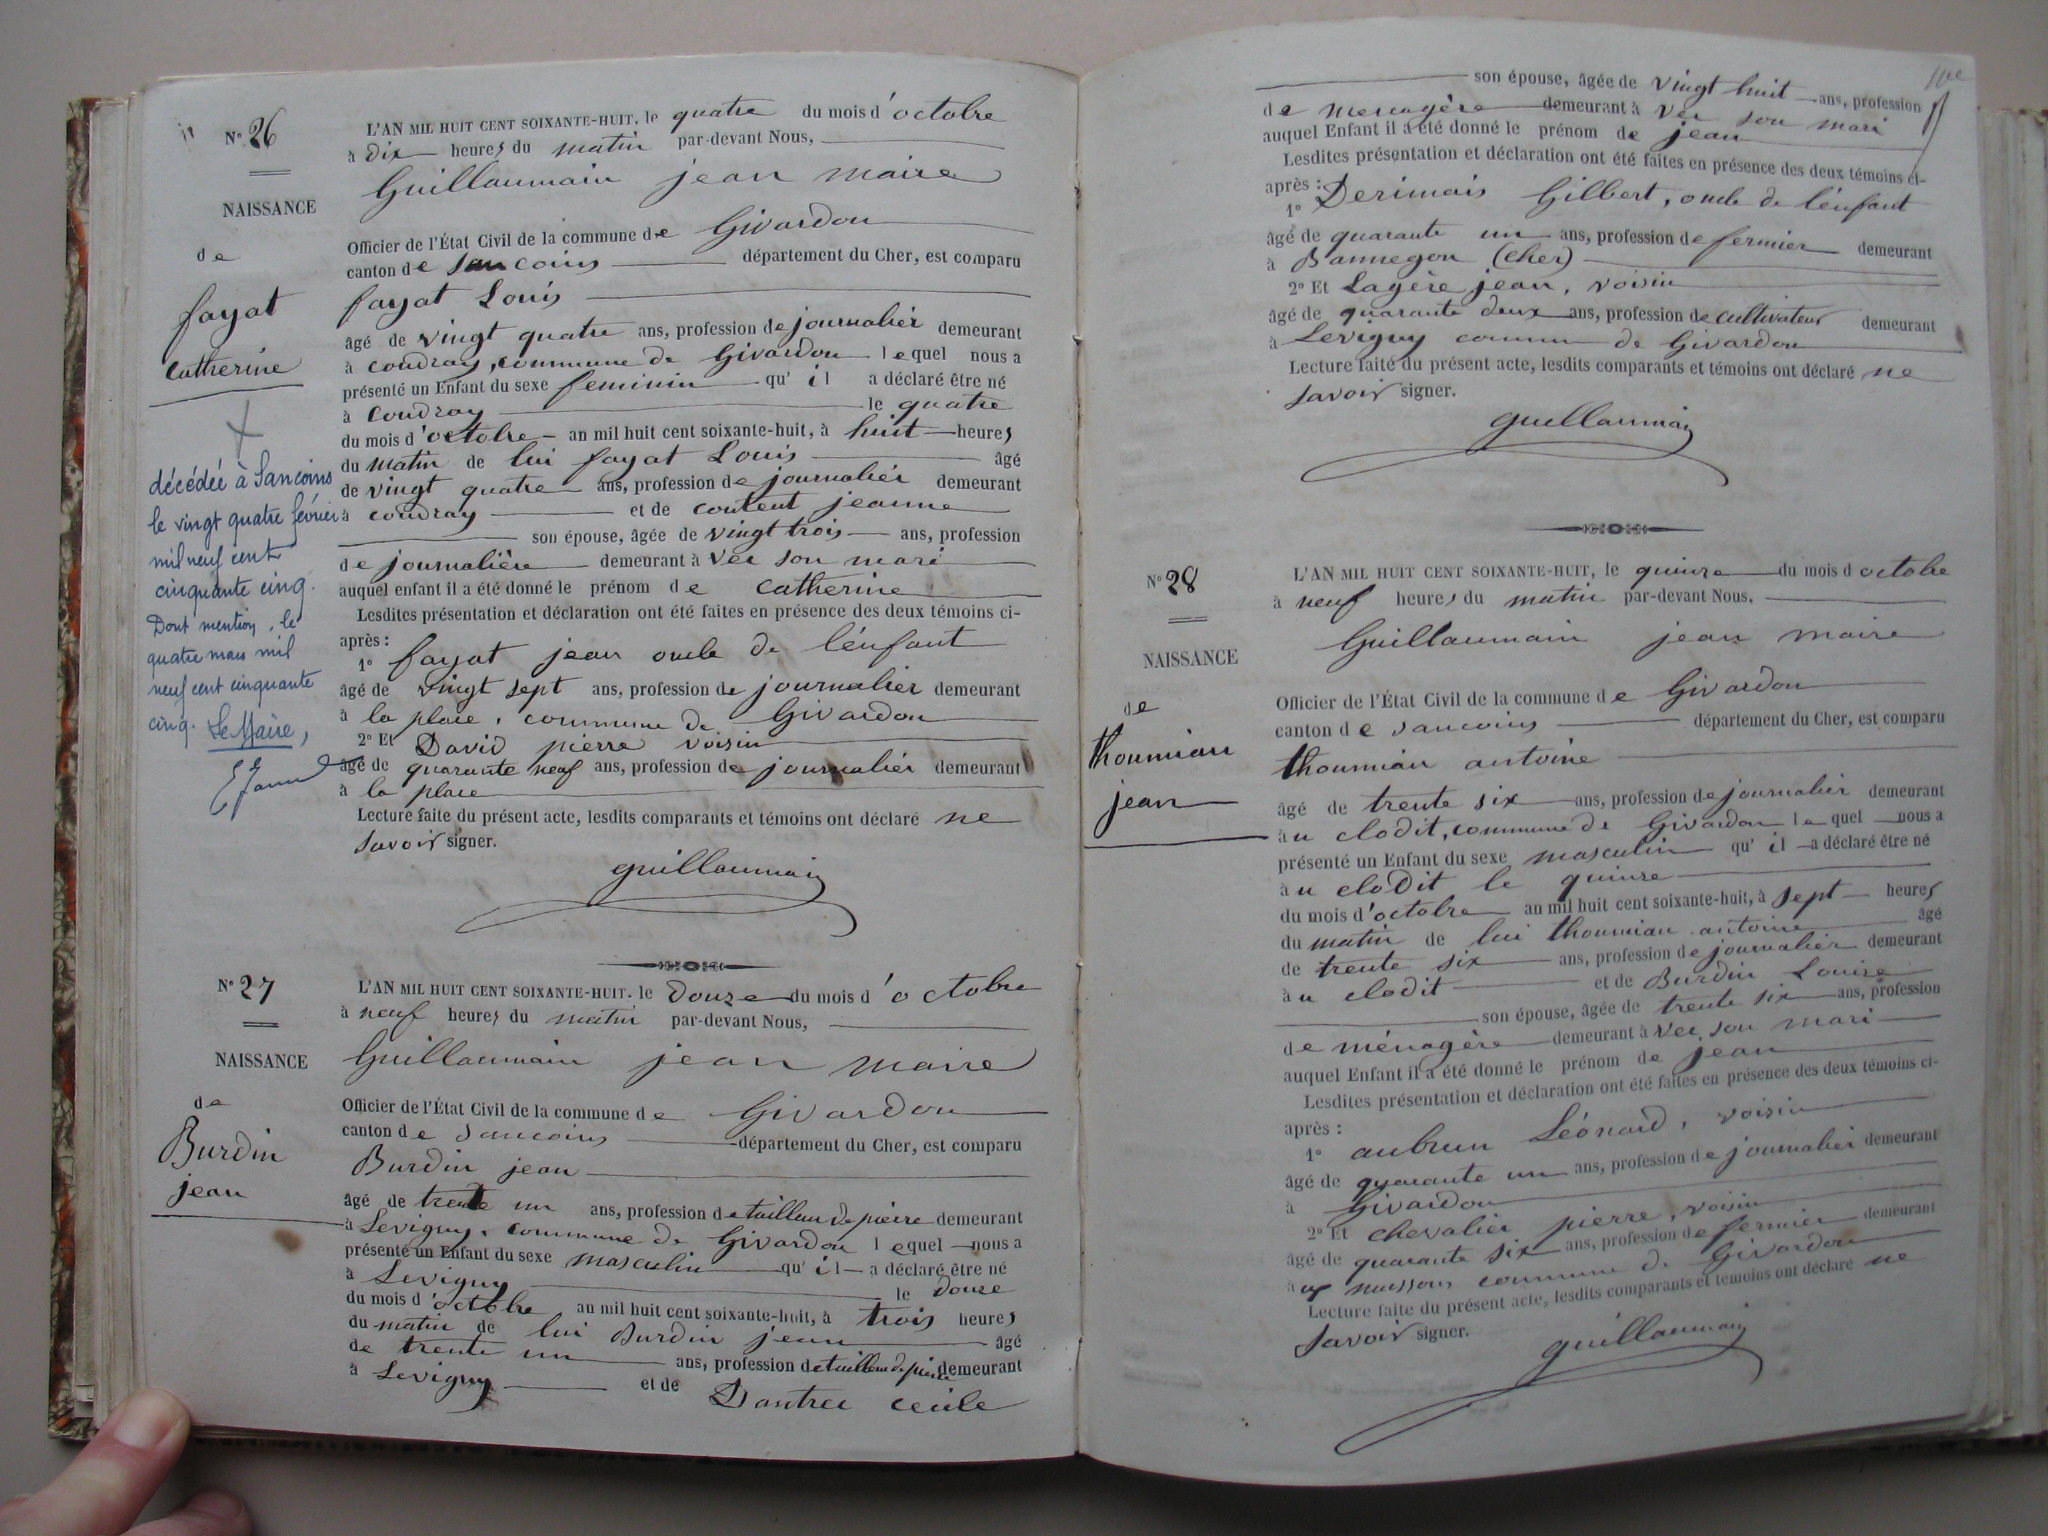 N° 26
NAISSANCE
de
fayat
catherine
décédée à Sancoins
le vingt quatre février
mil neuf cent
cinquante cinq.
Dont mention, le
quatre mars mil
neuf cent cinquante
cinq. Le Maire,
L'AN MIL HUIT CENT SOIXANTE-HUIT, le quatre du mois d'octobre
à dix heures du matin par-devant Nous,
Guillaumain jean maire
Officier de l'État Civil de la commune de Givardon
canton de Sancoins département du Cher, est comparu
fayat Louis
âgé de vingt quatre ans, profession de journalier demeurant
à coudray, commune de Givardon lequel nous a
présenté un Enfant du sexe feminin qu'il a déclaré être né
à coudray le quatre
du mois d'octobre an mil huit cent soixante-huit, à huit heures
du matin de lui fayat Louis âgé
de vingt quatre ans, profession de journalier demeurant
à coudray et de content jeanne
son épouse, âgée de vingt trois ans, profession
de journalière demeurant à vec son mari
auquel enfant il a été donné le prénom de catherine
Lesdites présentation et déclaration ont été faites en présence des deux témoins ci-
après :
1° fayat jean oncle de l'énfant
âgé de vingt sept ans, profession de journalier demeurant
à la place, commune de Givardon
2° Et David pierre voisin
âgé de quarante neuf ans, profession de journalier demeurant
à la place
Lecture faite du présent acte, lesdits comparants et témoins ont déclaré ne
savoir signer.
guillaumain
N° 27
NAISSANCE
de
Burdin
jean
L'AN MIL HUIT CENT SOIXANTE-HUIT. le douze du mois d'octobre
à neuf heures du matin par-devant Nous,
Guillaumain jean maire
Officier de l'État Civil de la commune de Givardon
canton de Sancoins département du Cher, est comparu
Burdin jean
âgé de trente un ans, profession de tailleur de pierre demeurant
à Levigny, commune de Givardon lequel nous a
présenté un Enfant du sexe masculin qu'il a déclaré être né
à Levigny le douze
du mois d'octobre an mil huit cent soixante-huit, à trois heures
du matin de lui Burdin jean âgé
de trente un ans, profession de tailleur de pierre demeurant
à Levigny et de Dautrec cecile
son épouse, âgée de vingt huit ans, profession
de menagère demeurant à vec son mari
auquel Enfant il a été donné le prénom de jean
Lesdites présentation et déclaration ont été faites en présence des deux témoins ci-
après :
1° Derimais Gilbert, oncle de l'énfant
âgé de quarante un ans, profession de fermier demeurant
à Bannegon (cher)
2° Et Lagère jean, voisin
âgé de quarante deux ans, profession de cultivateur demeurant
à Levigny commun de Givardon
Lecture faite du présent acte, lesdits comparants et témoins ont déclaré ne
savoir signer.
guillaumain
N° 28
NAISSANCE
de
thoumian
jean
L'AN MIL HUIT CENT SOIXANTE-HUIT, le quinze du mois d octobre
à neuf heures du matin par-devant Nous,
Guillaumain jean maire
Officier de l'État Civil de la commune de Givardon
canton de Sancoins département du Cher, est comparu
thoumian antoine
âgé de trente six ans, profession de journalier demeurant
à u clodit, commune de Givardon lequel nous a
présenté un Enfant du sexe masculin qu'il a déclaré être né
à u clodit le quinze
du mois d'octobre an mil huit cent soixante-huit, à sept heures
du matin de lui thoumian antoine âgé
de trente six ans, profession de journalier demeurant
à u clodit et de Burdin Louise
son épouse, âgée de trente six ans, profession
de ménagère demeurant à vec son mari
auquel Enfant il a été donné le prénom de jean
Lesdites présentation et déclaration ont été faites en présence des deux témoins ci-
après :
1° aubrun Léonard, voisin
âgé de quarante un ans, profession de journalier demeurant
à Givardon
2° Et chevalier pierre, voisin
âgé de quarante six ans, profession de fermier demeurant
à commune de Givardon
Lecture faite du présent acte, lesdits comparants et témoins ont déclaré ne
savoir signer.
guillaumain